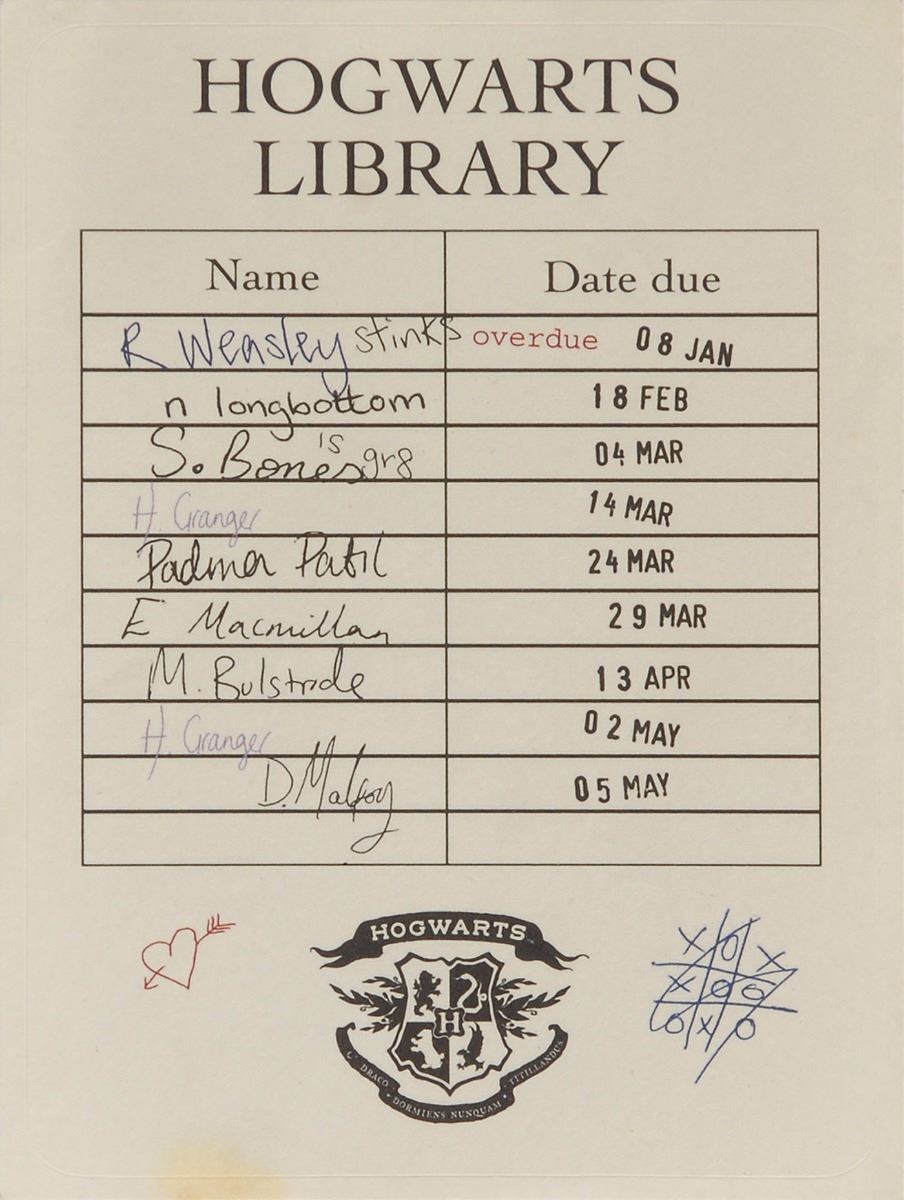 HOGWARTS
LIBRARY
Name Date due
R Weasley stinks overdue 08 JAN
n longbottom 18 FEB
S. Bones 's gr8 04 MAR
H. Granger 14 MAR
Padma Patil 24 MAR
E Macmillan 29 MAR
M. Bulstrode 13 APR
H. Granger 02 MAY
D. Malfoy 05 MAY
HOGWARTS
X O X
X O O
O X O
H
DRACO DORMIENS NUNQUAM TITILLANDUS